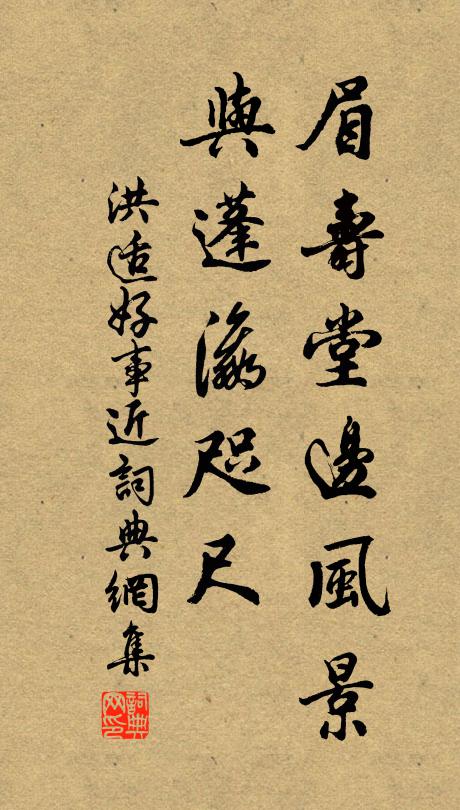 眉壽堂邊風景
與蓬瀛咫尺
洪适好事近詞典網集
詞典网印